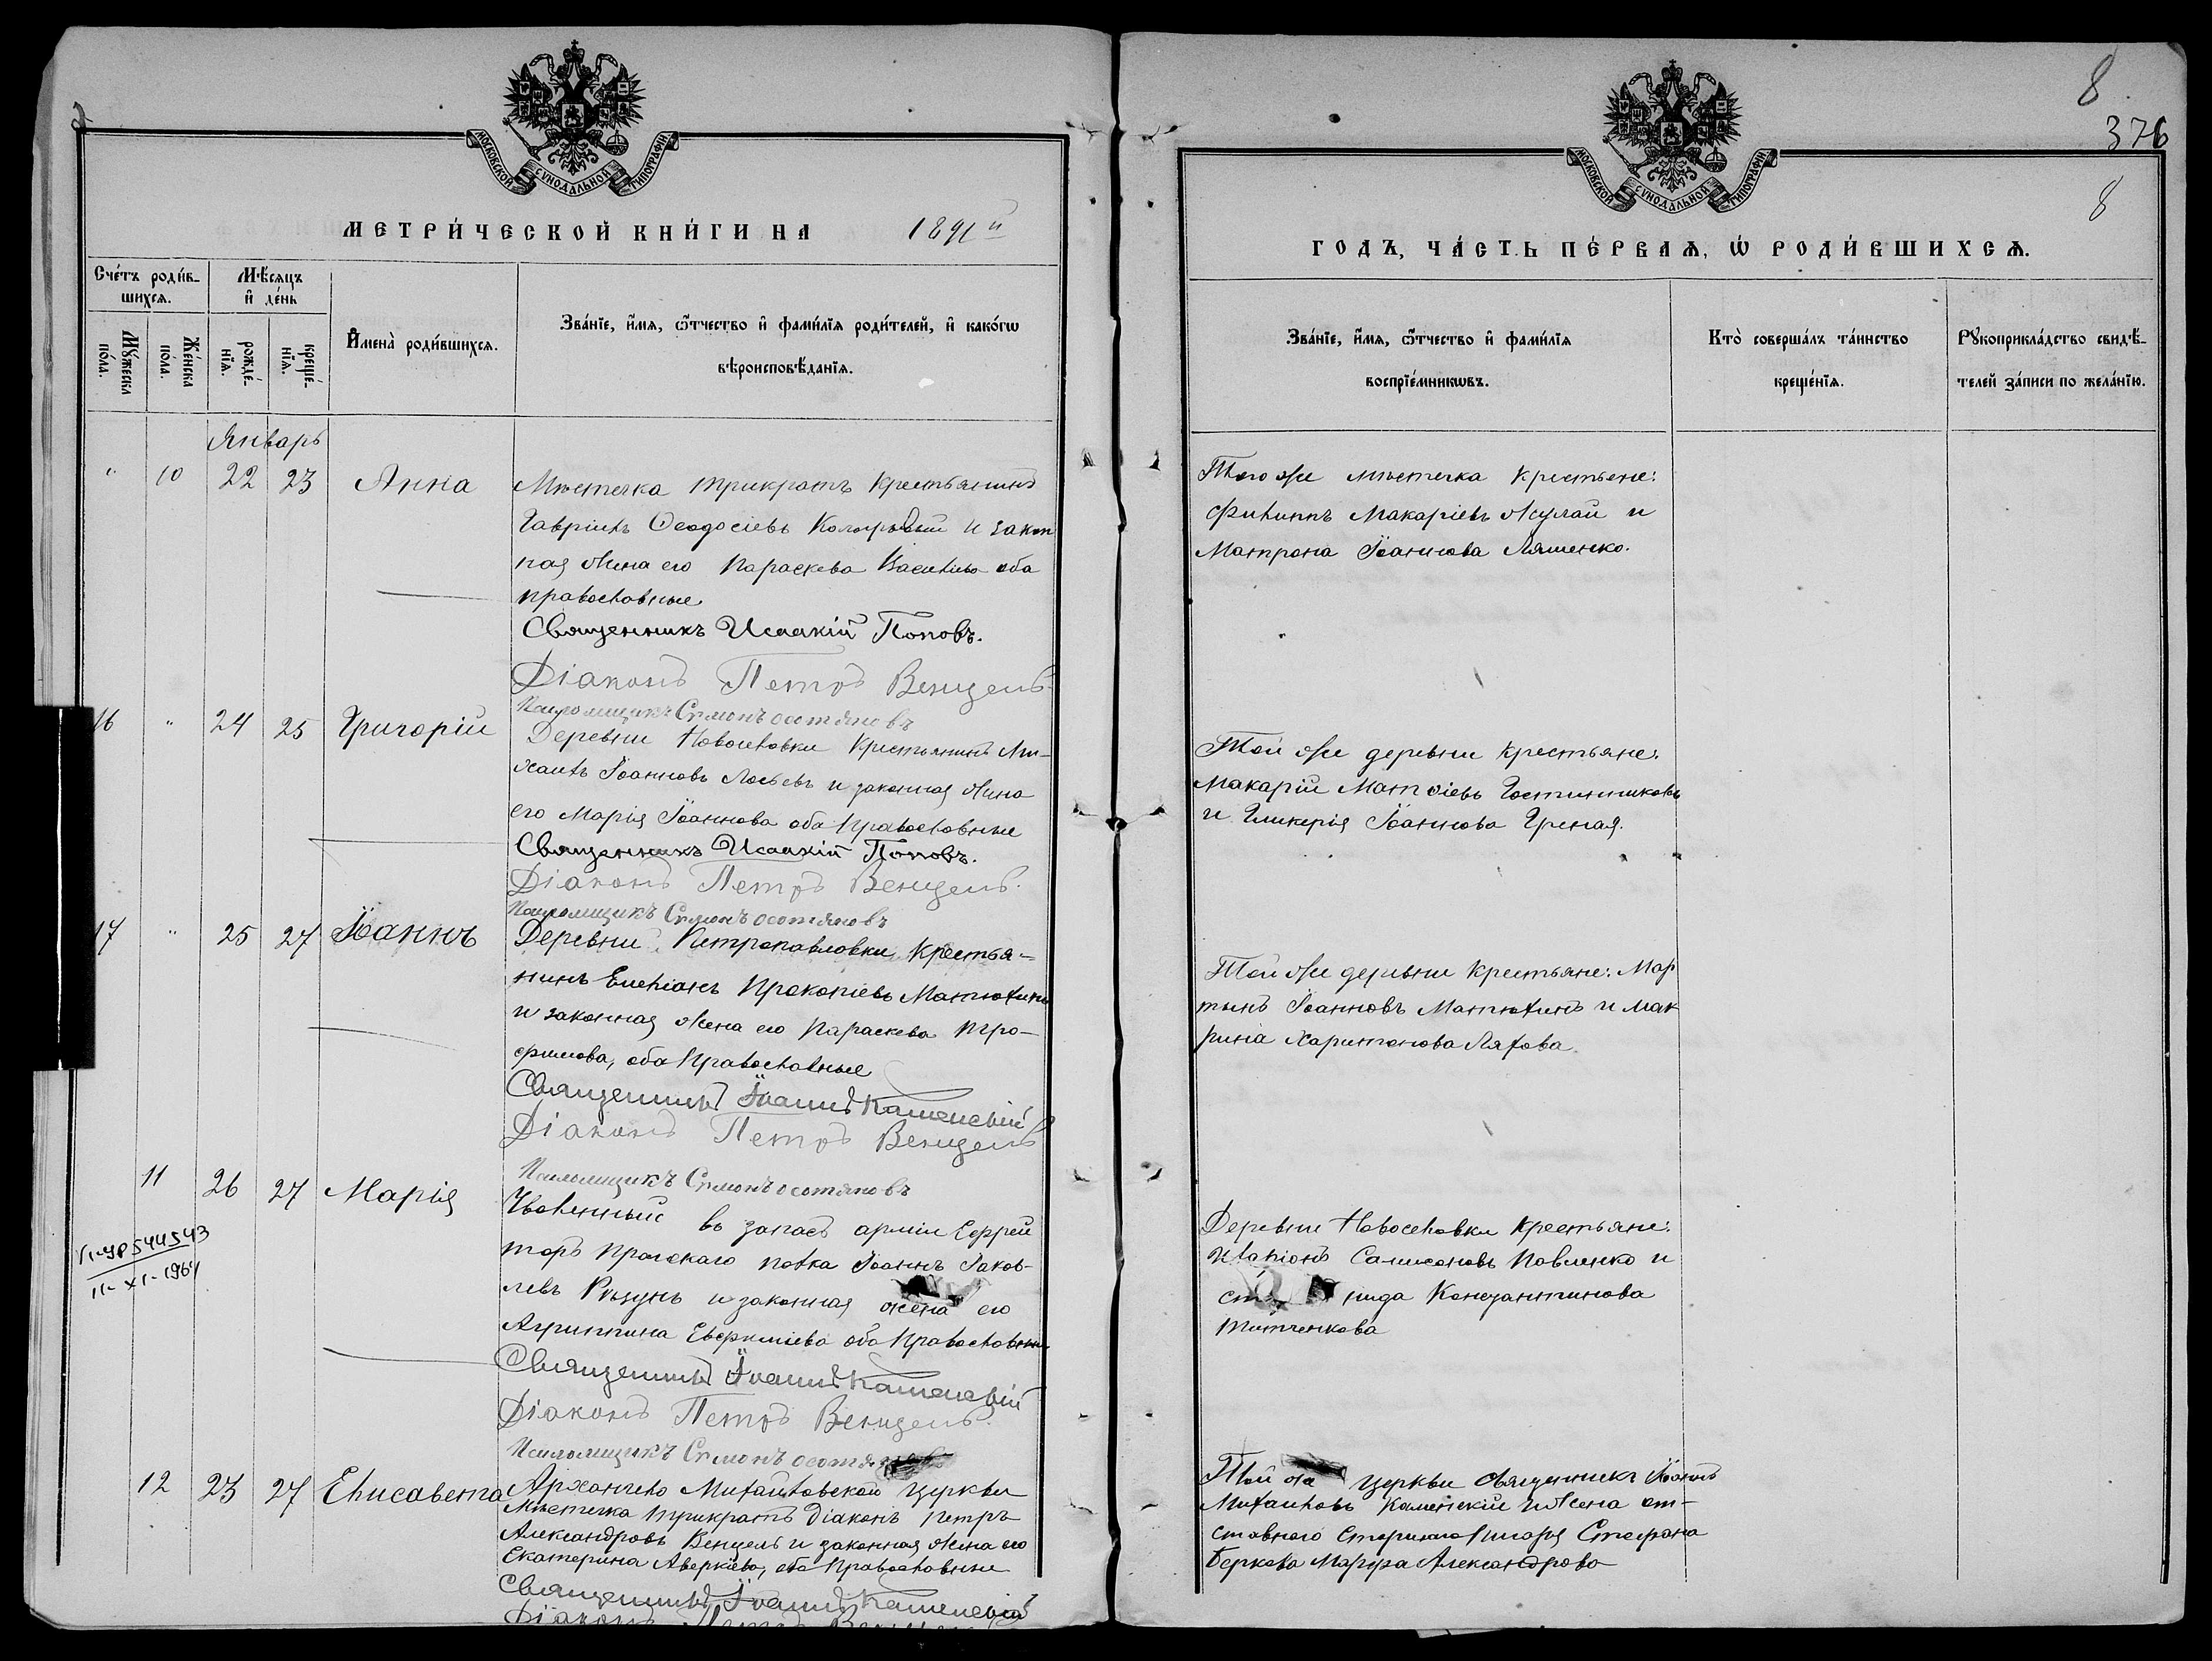 МОСКОВСКОЙ СѴНОДАЛЬНОЙ ТИПОГРАФІИ
МЕТРИ́ЧЕСКОЙ КНИ́ГИ НА 1891 й
Сче́тъ роди́в-
шихся.
Мѣ́сяцъ
и҆ де́нь
Мꙋ́жеска
по́ла.
Же́нска
по́ла.
рожде́-
нїѧ.
креще́-
нїѧ.
И҆мена̀ роди́вшихся.
Зва́нїе, и҆́мя, ѻ҆́тчество и҆ фами́лїя роди́телей, и҆ како́гѡ
вѣроисповѣ́данїя.
Январь
" 10 22 23 Анна
Мѣстечка Трикратъ крестьянинъ
Гавріилъ Ѳеодосіевъ и закон
ная жена его Параскева Василіева оба
православные
Священникъ Исаакій Поповъ.
Діаконъ Петръ Венцель.
Псаломщикъ Сѵмонъ Осотяновъ
16 " 24 25 Григорій
Деревни Новоселовки крестьянинъ Ми-
хаилъ Іоанновъ Лосьевъ и законная жена
его Марія Іоаннова оба православные
Священникъ Исаакій Поповъ.
Діаконъ Петръ Венцель.
Псаломщикъ Сѵмонъ Осотяновъ
17 " 25 27 Іоаннъ
Деревни Петропавловки крестья-
нинъ Емеліанъ Прокопіевъ Матюхинъ
и законная жена его Параскева Тро-
фимова, оба православные
Священникъ Іоаннъ Каменскій
Діаконъ Петръ Венцель
Псаломщикъ Сѵмонъ Осотяновъ
11 26 27 Марія
Уволенный въ запасъ арміи Ефрей
торъ Прагскаго полка Іоаннъ Іаков-
левъ Рѣзунъ и законная жена его
Агриппина Евфиміева оба православные
Священникъ Іоаннъ Каменскій
Діаконъ Петръ Венцель.
Псаломщикъ Сѵмонъ Осотяновъ
544543
11-XI-1964
12 23 27 Елисавета
Архангело Михайловской церкви
Мѣстечка Трикратъ діаконъ Петръ
Александровъ Венцель и законная жена его
Екатерина Аверкіева, оба православные
Священникъ Іоаннъ Каменскій
Діаконъ Петръ Венцель
8
376
8
МОСКОВСКОЙ СѴНОДАЛЬНОЙ ТИПОГРАФІИ
ГОДЪ, ЧА́СТЬ ПЕ́РВАЯ, Ѡ҆ РОДИ́ВШИХСЯ.
Зва́нїе, и҆́мя, ѻ҆́тчество и҆ фами́лїя
воспрїе́мникѡвъ.
Кто̀ соверша́лъ та́инство
креще́нїя.
Рꙋкоприкла́дство свидѣ́-
телей за́писи по жела́нїю.
Того же мѣстечка крестьяне:
Филиппъ Макаріевъ Жулай и
Матрона Іоаннова Ляшенко.
Той же деревни крестьяне:
Макарій Матѳіевъ Гостинниковъ
и Гликерія Іоаннова
Той же деревни крестьяне: Мар
тынъ Іоанновъ Матюхинъ и Мак
рина Харитонова Ляхова.
Деревни Новоселовки крестьяне:
Иларіонъ Самсоновъ Павленко и
нида Константинова
Титченкова
Той же церкви священникъ Іоаннъ
Михаиловъ Каменскій и жена от-
ставного старшаго писаря Стефана
Беркова Марфа Александрова